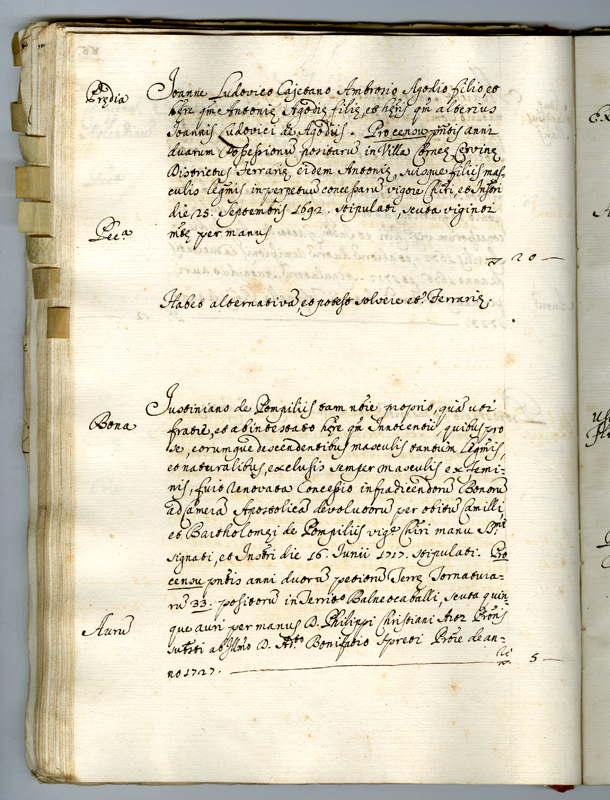 Prędia
Joanne Ludovico Cajetano Ambrosio Agodio filio, et
hęre qm̃ Antonię Agodię filię, et hęris qm̃ alterius
Joannis Ludovici de Agodiis. Pro censu pñtis anni
duarum Possessionũ positarũ in Villa Cornę Cervinę
Districtus Ferrarię, eidem Antonię, suisque filiis mas=
culis legmis in perpetuũ concessarũ vigore Chiri, et Instri
die 25. Septembris 1692. stipulati, scuta viginti
mtę per manus
Pec.a
20 —
Habet alternativã, et potest solvere et. Ferrarię.
Bona
Justiniano de Pompiliis tam nõie proprio, quã uti
fratre, et ab intestato hęre qm̃ Innocentii quibus pro
se, eorumque descendentibus masculis tantum legmis,
et naturalibus, exclusis semper masculis ex femi-
nis, fuit renovata Concessio infradicendorũ Bonorũ
ad Camera Apostolica devolutorũ per obitũ Camilli,
et Bartholomęi de Pompiliis vige Chiri manu Smi
signati, et Instri die 16. Junii 1717. stipulati. Pro
censu pñtis anni duorũ petiorũ Terrę Tornatura-
rũ 33. positorũ in Territo Balneocaballi, scuta quin-
que auri per manus D. Philippi Christiani
Aurũ
ab Illmo D. Bonifatio Spreti de an-
no 1727. —
5 —